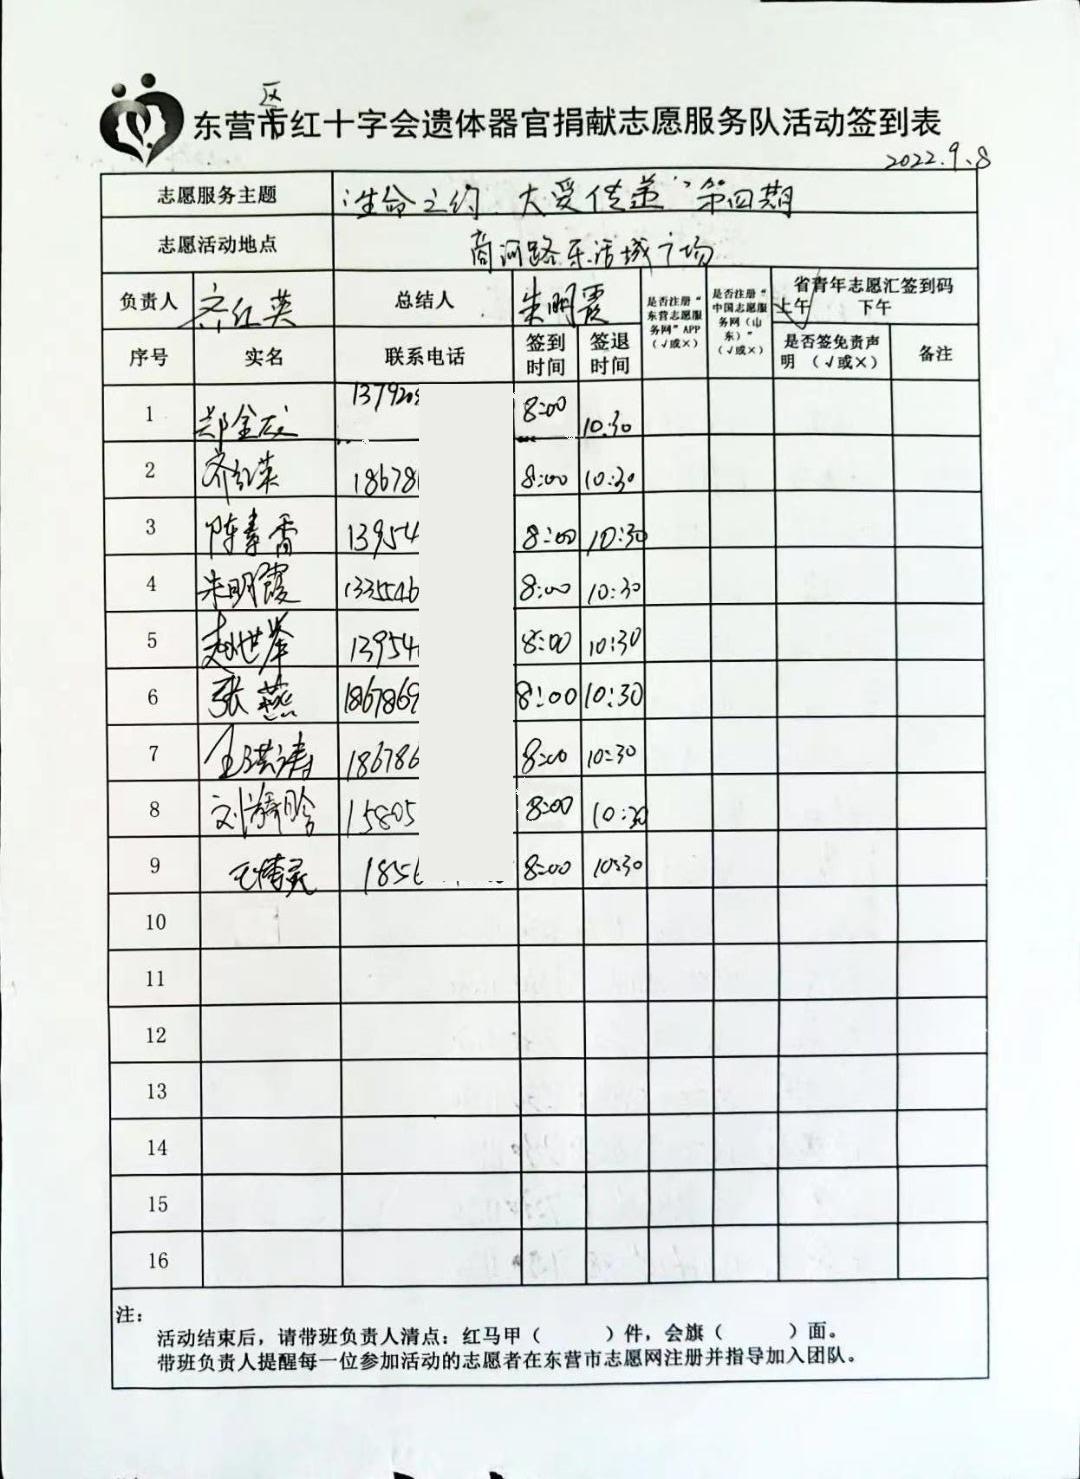 区
东营市红十字会遗体器官捐献志愿服务队活动签到表
2022.9.8
志愿服务主题 "生命之约.大爱传递"第四期
志愿活动地点 商河路乐活城广场
负责人 齐红英 总结人 朱明霞 是否注册"东营志愿服务网"APP（√或×） 是否注册"中国志愿服务网（山东）"（√或×） 省青年志愿汇签到码 上午√ 下午
序号 实名 联系电话 签到时间 签退时间 是否签免责声明（√或×） 备注
1 郑金成 1379208 8:00 10.30
2 齐红英 18678 8:00 10:30
3 陈素霄 13954 8:00 10:30
4 朱明霞 1335546 8:00 10:30
5 赵世举 13954 8:00 10:30
6 张燕 1867869 8:00 10:30
7 王洪涛 186786 8:00 10:30
8 刘 15805 8:00 10:30
9 王 1856 8:00 10:30
10
11
12
13
14
15
16
注：
活动结束后，请带班负责人清点：红马甲（ ）件，会旗（ ）面。
带班负责人提醒每一位参加活动的志愿者在东营市志愿网注册并指导加入团队。